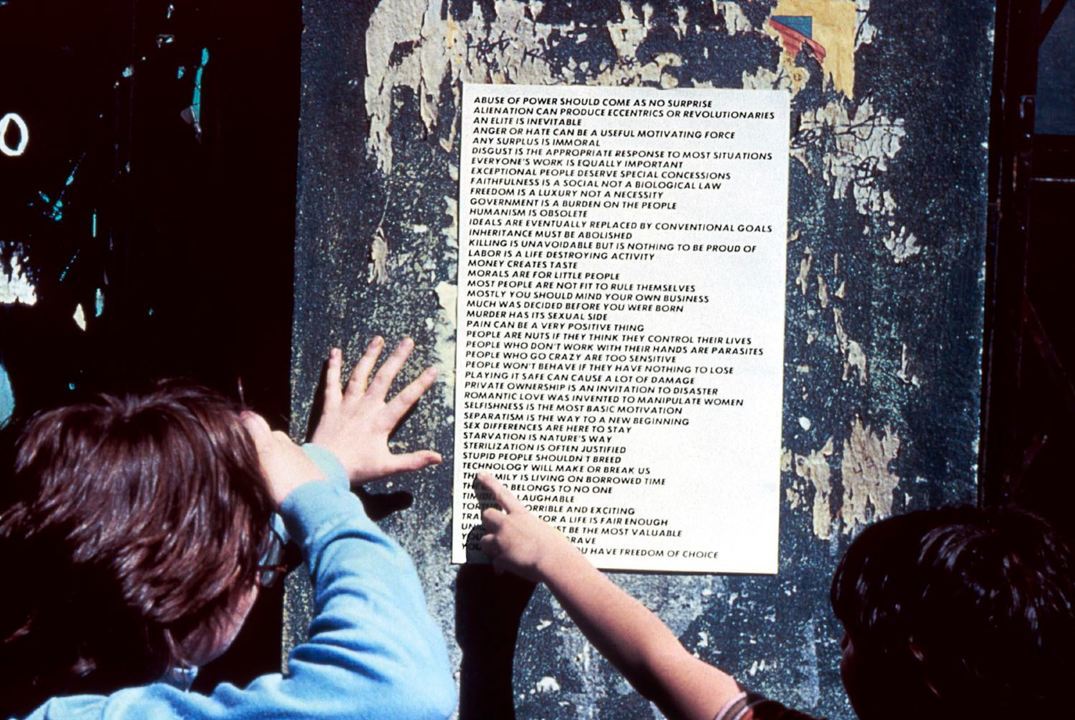 ABUSE OF POWER SHOULD COME AS NO SURPRISE
ALIENATION CAN PRODUCE ECCENTRICS OR REVOLUTIONARIES
AN ELITE IS INEVITABLE
ANGER OR HATE CAN BE A USEFUL MOTIVATING FORCE
ANY SURPLUS IS IMMORAL
DISGUST IS THE APPROPRIATE RESPONSE TO MOST SITUATIONS
EVERYONE'S WORK IS EQUALLY IMPORTANT
EXCEPTIONAL PEOPLE DESERVE SPECIAL CONCESSIONS
FAITHFULNESS IS A SOCIAL NOT A BIOLOGICAL LAW
FREEDOM IS A LUXURY NOT A NECESSITY
GOVERNMENT IS A BURDEN ON THE PEOPLE
HUMANISM IS OBSOLETE
IDEALS ARE EVENTUALLY REPLACED BY CONVENTIONAL GOALS
INHERITANCE MUST BE ABOLISHED
KILLING IS UNAVOIDABLE BUT IS NOTHING TO BE PROUD OF
LABOR IS A LIFE DESTROYING ACTIVITY
MONEY CREATES TASTE
MORALS ARE FOR LITTLE PEOPLE
MOST PEOPLE ARE NOT FIT TO RULE THEMSELVES
MOSTLY YOU SHOULD MIND YOUR OWN BUSINESS
MUCH WAS DECIDED BEFORE YOU WERE BORN
MURDER HAS ITS SEXUAL SIDE
PAIN CAN BE A VERY POSITIVE THING
PEOPLE ARE NUTS IF THEY THINK THEY CONTROL THEIR LIVES
PEOPLE WHO DON'T WORK WITH THEIR HANDS ARE PARASITES
PEOPLE WHO GO CRAZY ARE TOO SENSITIVE
PEOPLE WON'T BEHAVE IF THEY HAVE NOTHING TO LOSE
PLAYING IT SAFE CAN CAUSE A LOT OF DAMAGE
PRIVATE OWNERSHIP IS AN INVITATION TO DISASTER
ROMANTIC LOVE WAS INVENTED TO MANIPULATE WOMEN
SELFISHNESS IS THE MOST BASIC MOTIVATION
SEPARATISM IS THE WAY TO A NEW BEGINNING
SEX DIFFERENCES ARE HERE TO STAY
STARVATION IS NATURE'S WAY
STERILIZATION IS OFTEN JUSTIFIED
STUPID PEOPLE SHOULDN'T BREED
TECHNOLOGY WILL MAKE OR BREAK US
IS LIVING ON BORROWED TIME
BELONGS TO NO ONE
LAUGHABLE
AND EXCITING
FOR A LIFE IS FAIR ENOUGH
BE THE MOST VALUABLE
HAVE FREEDOM OF CHOICE